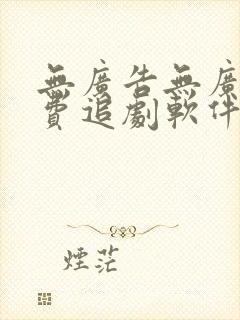 無廣告無廣
費追劇軟件
煙茫